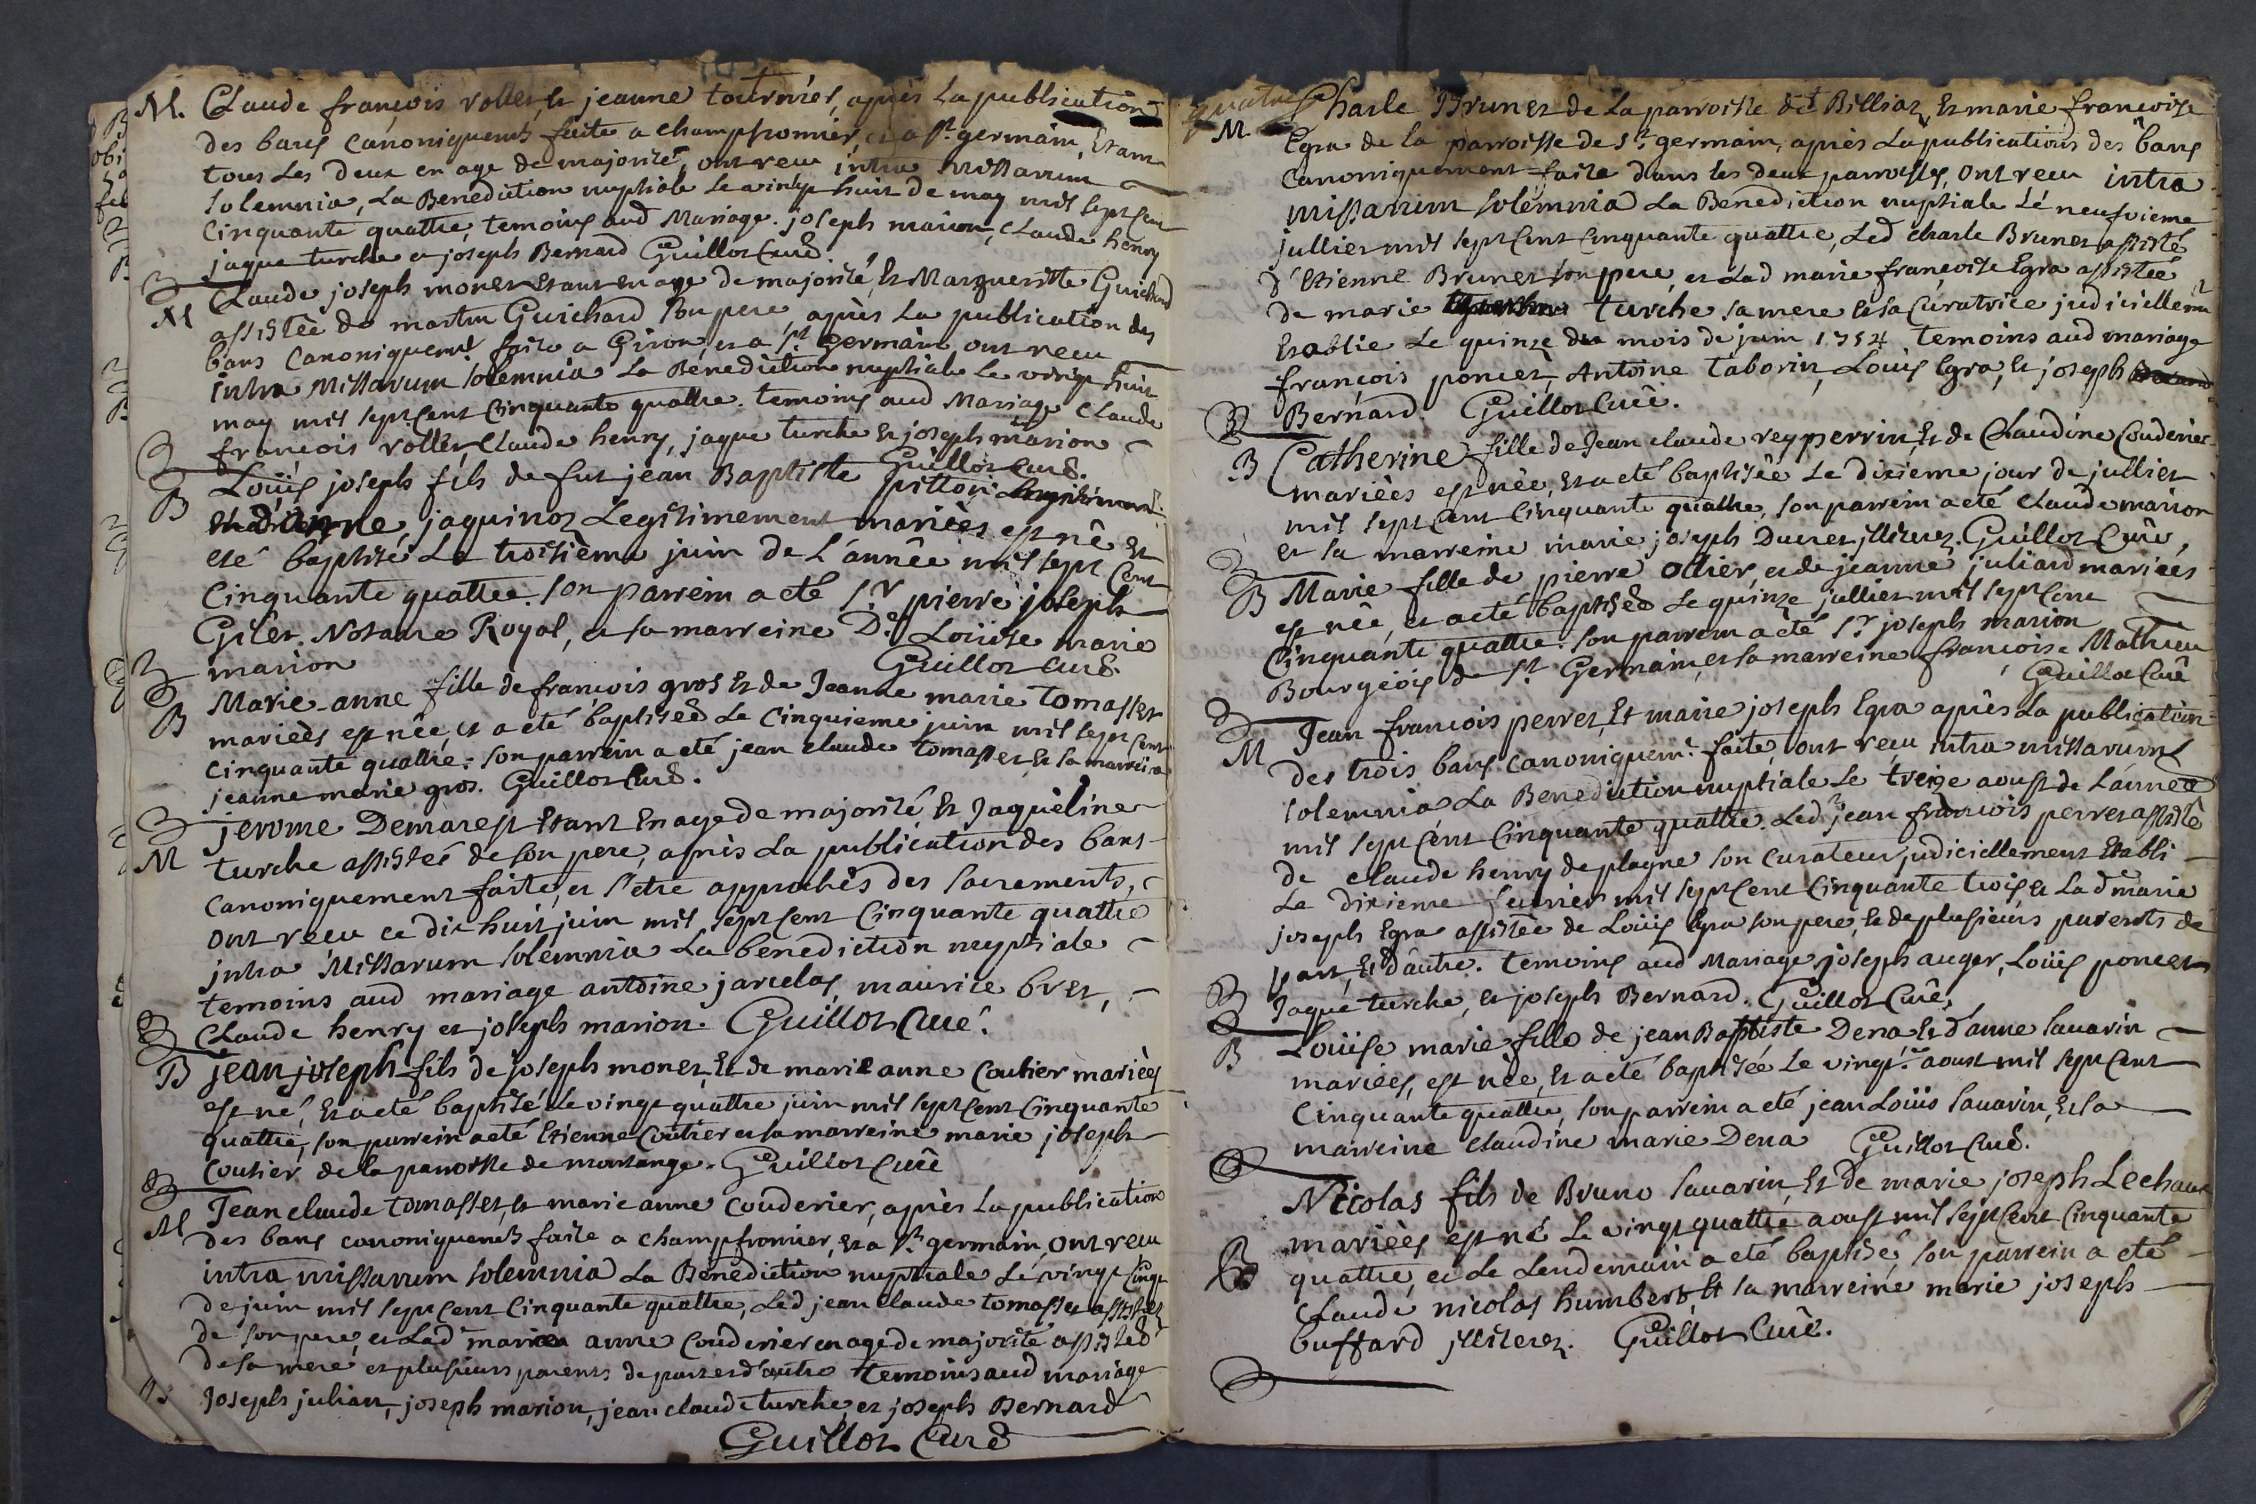 M. Claude françois rollet, et jeanne tournier, après la publication
des bans canoniquemt faite a champfromier, et a st. germain, Etant
tous les deux en age de majorité, ont reçu intra missarum
solemnia, la Benediction nuptiale le vingt huit de may mil sept cent
cinquante quattre, temoins aud Mariage. joseph marion, claude henry
jaque turche et joseph Bernard Guillot Curé.
M Claude joseph monet Etant en age de majorité, Et Margueritte Guichard
assistée de martin Guichard son pere après la publication des
bans canoniquemt faite a Giron, et a st. Germain ont reçu
intra Missarum solemnia la Benediction nuptiale le vingt huit
may mil sept cent cinquante quattre. temoins aud Mariage Claude
françois rollet, Claude henry, jaque turche et joseph marion
Guillot Curé.
B Loüis joseph fils de fut jean Baptiste pitton
Et d'anne jaquinot Legitimement mariées est né et
eté baptisé le troisième juin de l'année mil sept cent
cinquante quattre. son parrein a eté sr. pierre joseph
Gilet. Notaire Royal, et sa marreine De. Loüise marie
marion Guillot Curé.
B Marie-anne fille de françois gros Et de Jeanne marie tomasset
mariéès est née, et a eté baptiséè le cinquieme juin mil sept cent
cinquante quattre. son parrein a eté jean claude tomasset et sa marreine
jeanne marie gros. Guillot Curé.
M jerome Demarest Etant En age de majorité, Et Jaqueline
turche assistée de son pere, après la publication des bans
canoniquement faite, et s'etre approchés des sacrements,
ont reçu ce dix huit juin mil sept cent cinquante quattre
intra Missarum solemnia la benediction nuptiale
temoins aud mariage antoine jarcelas, maurice bret,
Claude henry et joseph marion. Guillot Curé.
B jean joseph fils de joseph monet, Et de marie anne Coutier mariéès
est né, Et a eté baptisé le vingt quattre juin mil sept cent cinquante
quattre, son parrein a eté Etienne Coutier et sa marreine marie joseph
Coutier de la paroisse de montange. Guillot Curé
M Jean claude tomasset, et marie anne Couderier, après la publication
des bans canoniquemt faite a champfromier, et a st. germain, ont reçu
intra missarum solemnia la Benediction nuptiale le vingt cinq
de juin mil sept cent cinquante quattre, led jean claude tomasset assisté
de son pere, et lad marie anne Couderier en age de majorité assistéè
de sa mere et plusieurs parents de part et d'autre temoins aud mariage
Joseph julian, joseph marion, jean claude turche, et joseph Bernard
Guillot Curé
M Charle Brunet de la parroisse de Billiat, Et marie françoise
Egra de la parroisse de st. germain, après la publications des bans
canoniquement faite dans les deux parroisses, ont reçu intra
missarum solemnia la Benediction nuptiale lé neufvieme
jullier mil sept cent cinquante quattre, Led charle Brunet assisté
d'Etienne Brunet son pere, et lad marie françoise Egra assistéé
de marie turche sa mere et sa Curatrice judiciellemt
Etablie le quinze du mois de juin 1754 temoins aud mariage
françois poncet, Antoine taborin, Loüis Egra, Et joseph
Bernard. Guillot Curé.
B Catherine fille de Jean claude rey perrin, Et de Claudine Couderier
mariéès est née, et a eté baptisée le dixieme jour de jullier
mil sept cent cinquante quattre, son parrein a eté claude marion
et sa marreine marie joseph Ducret jlliterez. Guillot Curé,
B Marie fille de pierre ollier, et de jeanne juliard mariées
est née, et a eté baptiséè le quinze jullier mil sept cent
cinquante quattre. son parrein a eté sr. joseph marion
Bourgeois de st. Germain, et sa marreine françoise Mathieu
Guillot Curé
M Jean françois perret, Et marie joseph Egra après la publication
des trois bans canoniquemt. faite, ont reçu intra missarum
solemnia la Benediction nuptiale le treize aoust de l'année
mil sept cent cinquante quattre. Led jean françois perret assisté
de claude henry de plagne son curateur judiciellement Etabli
le dixieme fevrier mil sept cent cinquante trois, et la d marie
joseph Egra assistée de Loüis Egra son pere, Et de plusieurs parents de
part, Et d'autre. temoins aud Mariage joseph auger, Loüis poncet
Jaque turche, et joseph Bernard. Guillot Curé,
B Loüise marie fille de jean Baptiste Dena Et d'anne Savarin
mariées, est née, Et a eté baptisée le vingt aoust mil sept cent
cinquante quattre, son parrein a eté jean Loüis Savarin, Et sa
marreine claudine marie Dena Guillot Curé.
B Nicolas fils de Bruno Savarin, Et de marie joseph Lechaux
mariéès est né le vingt quattre aoust mil sept cent cinquante
quattre, et le lendemain a eté baptisé, son parrein a eté
Claude nicolas humbert, Et sa marreine marie joseph
buffard jlliterez. Guillot Curé.